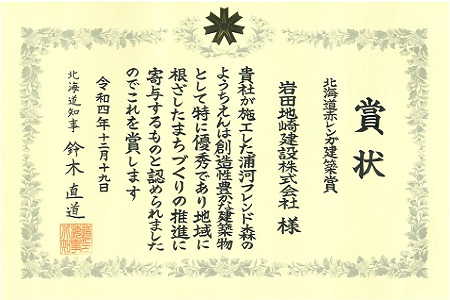 賞状
北海道赤レンガ建築賞
岩田地崎建設株式会社 様
貴社が施工した浦河フレンド森の
ようちえんは創造性豊かな建築物
として特に優秀であり地域に
根ざしたまちづくりの推進に
寄与するものと認められました
のでこれを賞します
令和四年十二月十九日
北海道知事 鈴木直道